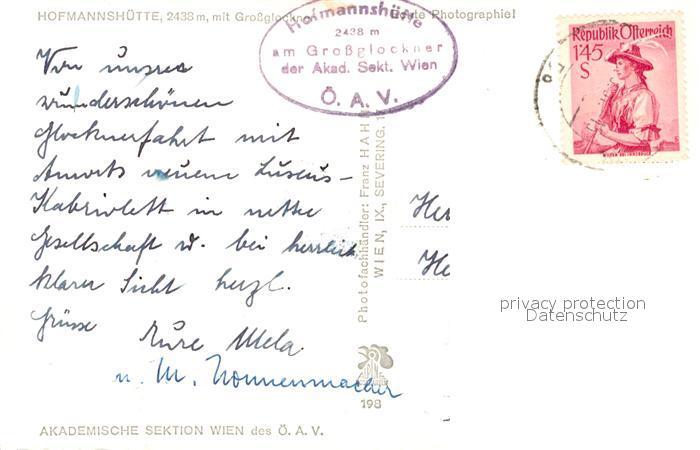 HOFMANNSHÜTTE, 2438 m, mit Großglockner Echte Photographie!
Hofmannshütte
2438 m
am Großglockner
der Akad. Sekt. Wien
Ö. A. V.
Republik Österreich
1'45
S
Von unserer
wunderschönen
Glocknerfahrt mit
neuem Luxus-
Kabriolett in netter
Gesellschaft u. bei herrlich
klarer Sicht herzl.
Grüsse Eure Mela
u. M. Nonnenmacher
Photofachhändler: Franz HAH
WIEN, IX., SEVERING.
198
AKADEMISCHE SEKTION WIEN des Ö. A. V.
privacy protection
Datenschutz